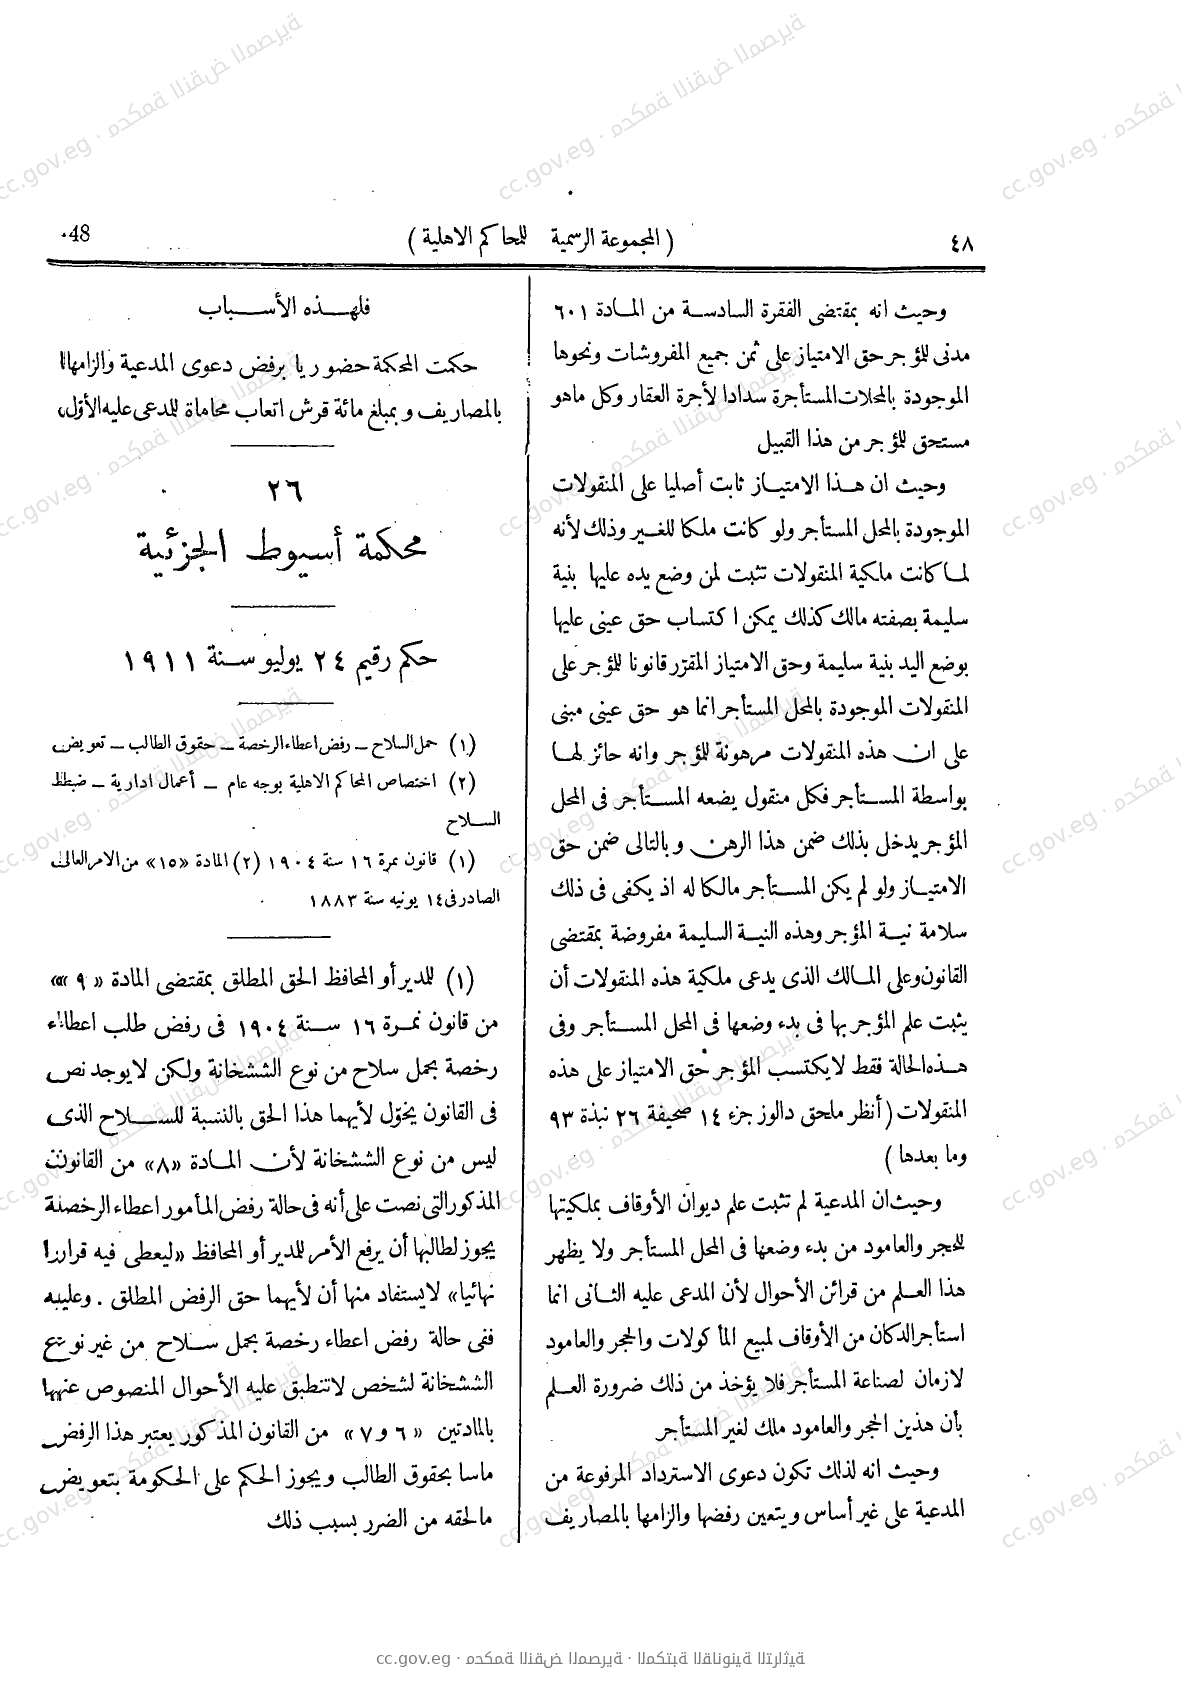 ٤٨
( المجموعة الرسمية للمحاكم الاهلية )
48
وحيث انه بمقتضى الفقرة السادسة من المادة ٦٠١
مدنى للؤجر حق الامتياز على ثمن جميع المفروشات ونحوها
الموجودة بالمحلات المستأجرة سدادا لأجرة العقار وكل ماهو
مستحق للؤجر من هذا القبيل
وحيث ان هذا الامتياز ثابت أصليا على المنقولات
الموجودة بالمحل المستأجر ولو كانت ملكا للغير وذلك لأنه
لما كانت ملكية المنقولات تثبت لمن وضع يده عليها بنية
سليمة بصفته مالك كذلك يمكن اكتساب حق عينى عليها
بوضع اليد بنية سليمة وحق الامتياز المقرّر قانونا للؤجر على
المنقولات الموجودة بالمحل المستأجر انما هو حق عينى مبنى
على ان هذه المنقولات مرهونة للؤجر وانه حائز لها
بواسطة المستأجر فكل منقول يضعه المستأجر فى المحل
المؤجر يدخل بذلك ضمن هذا الرهن وبالتالى ضمن حق
الامتياز ولو لم يكن المستأجر مالكا له اذ يكفى فى ذلك
سلامة نية المؤجر وهذه النية السليمة مفروضة بمقتضى
القانون وعلى المالك الذى يدعى ملكية هذه المنقولات أن
يثبت علم المؤجر بها فى بدء وضعها فى المحل المستأجر وفى
هذه الحالة فقط لا يكتسب المؤجر حق الامتياز على هذه
المنقولات ( أنظر ملحق دالوز جزء ١٤ صحيفة ٢٦ نبذة ٩٣
وما بعدها )
وحيث ان المدعية لم تثبت علم ديوان الأوقاف بملكيتها
للحجر والعامود من بدء وضعها فى المحل المستأجر ولا يظهر
هذا العلم من قرائن الأحوال لأن المدعى عليه الثانى انما
استأجر الدكان من الأوقاف لمبيع المأكولات والحجر والعامود
لازمان لصناعة المستأجر فلا يؤخذ من ذلك ضرورة العلم
بأن هذين الحجر والعامود ملك لغير المستأجر
وحيث انه لذلك تكون دعوى الاسترداد المرفوعة من
المدعية على غير أساس ويتعين رفضها والزامها بالمصاريف
فلهذه الأسباب
حكمت المحكمة حضوريا برفض دعوى المدعية والزامها
بالمصاريف وبمبلغ مائة قرش اتعاب محاماة للمدعى عليه الأوّل
٢٦
محكمة أسيوط الجزئية
حكم رقيم ٢٤ يوليو سنة ١٩١١
(١) حمل السلاح – رفض اعطاء الرخصة – حقوق الطالب – تعويض
(٢) اختصاص المحاكم الاهلية بوجه عام – أعمال ادارية – ضبط
السلاح
(١) قانون نمرة ١٦ سنة ١٩٠٤ (٢) المادة «١٥» من الامر العالى
الصادر فى ١٤ يونيه سنة ١٨٨٣
(١) للمدير أو المحافظ الحق المطلق بمقتضى المادة «٩»
من قانون نمرة ١٦ سنة ١٩٠٤ فى رفض طلب اعطاء
رخصة بحمل سلاح من نوع الششخانة ولكن لا يوجد نص
فى القانون يخوّل لأيهما هذا الحق بالنسبة للسلاح الذى
ليس من نوع الششخانة لأن المادة «٨» من القانون
المذكور التى نصت على أنه فى حالة رفض المأمور اعطاء الرخصة
يجوز لطالبها أن يرفع الأمر للمدير أو المحافظ «ليعطى فيه قرارا
نهائيا» لا يستفاد منها أن لأيهما حق الرفض المطلق . وعليه
ففى حالة رفض اعطاء رخصة بحمل سلاح من غير نوع
الششخانة لشخص لا تنطبق عليه الأحوال المنصوص عنها
بالمادتين «٦ و٧» من القانون المذكور يعتبر هذا الرفض
ماسا بحقوق الطالب ويجوز الحكم على الحكومة بتعويض
ما لحقه من الضرر بسبب ذلك
cc.gov.eg · محكمة النقض المصرية · المكتبة القانونية التراثية